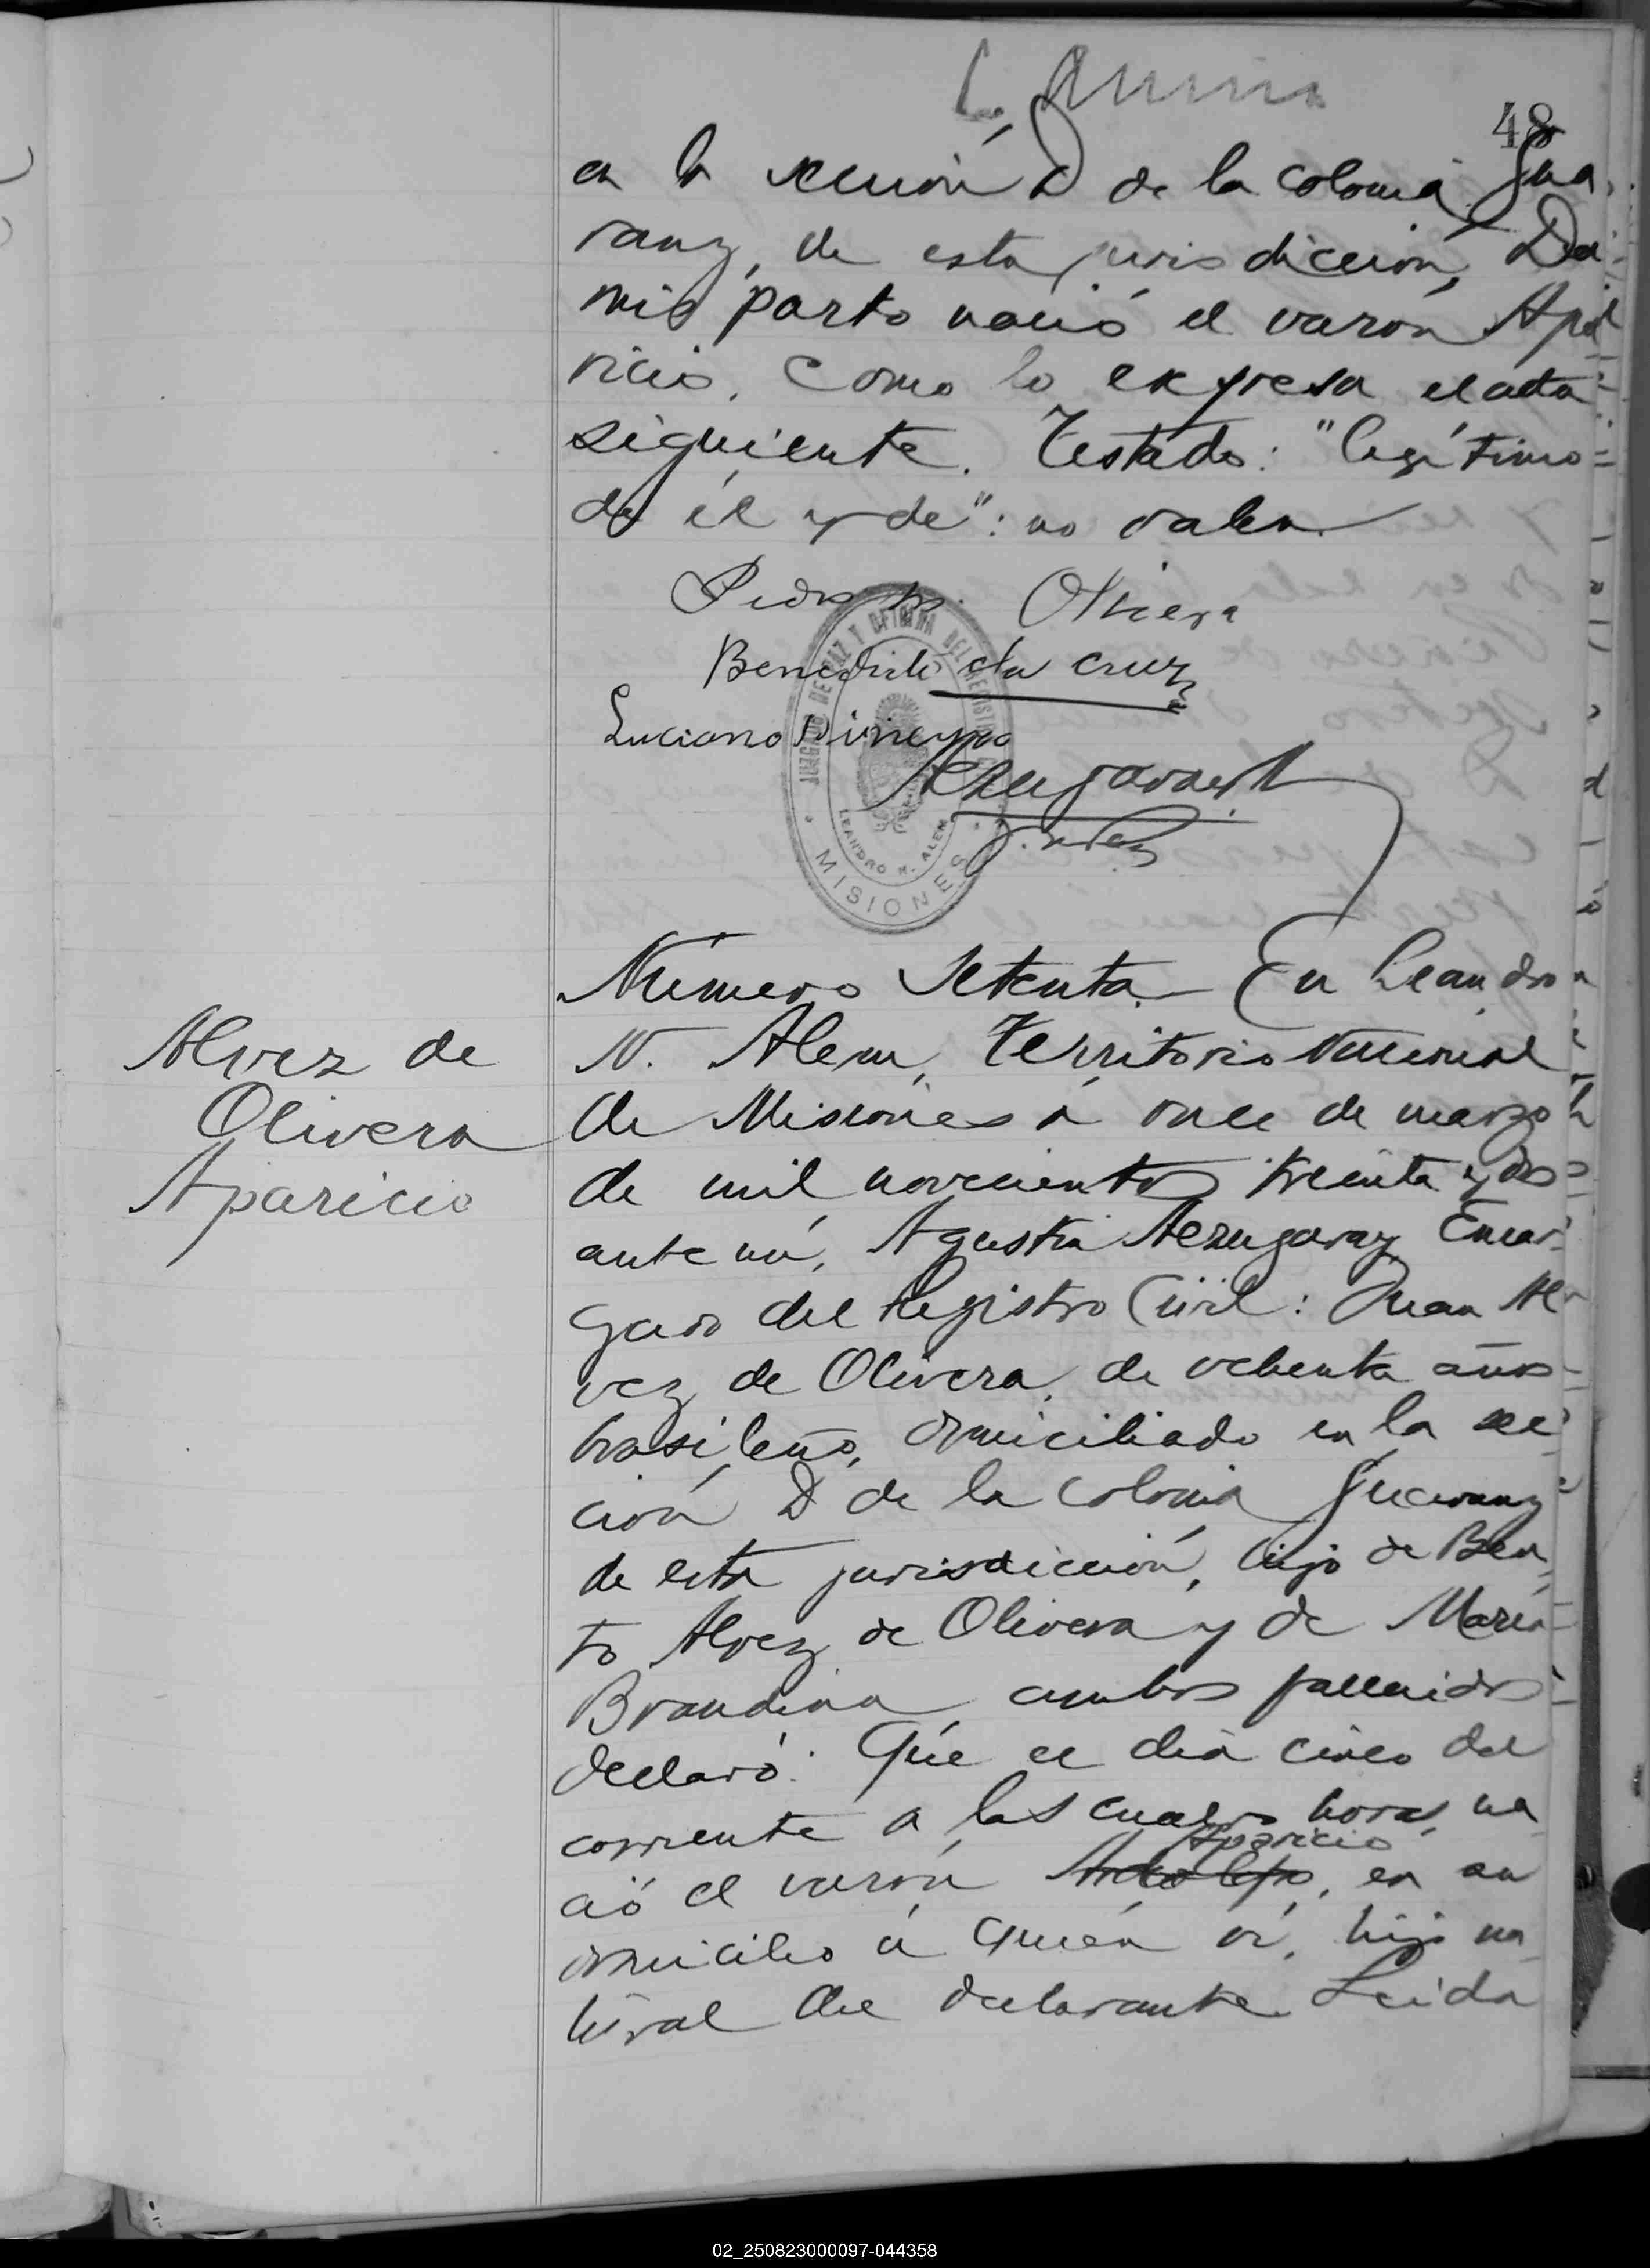 48
en la sección D de la colonia Gua
rany, de esta jurisdicción, Del
mis parto nació el varón Apa
ricio, como lo expresa el acta
siguiente. Testado: "legítimo
de él y de": no valen
Olivera
Benedicto da Cruz
Luciano Pineyro
JUZGADO DE PAZ Y OFICINA DEL REGISTRO
LEANDRO N. ALEM
MISIONES
Número Setenta - En Leandro
N. Alem, Territorio Nacional
de Misiones á once de marzo
de mil novecientos treinta y dos
ante mí, Agustín Aezugaray Encar
gado del Registro Civil: Juan Al
vez de Olivera, de ochenta años
brasileño, domiciliado en la sec
ción D de la colonia Guarany
de esta jurisdicción, hijo de Ben
to Alvez de Olivera y de María
Brandina ambos fallecidos
declaró: Que el día cinco del
corriente a las cuatro horas na
Aparicio
ció el varón Adolfo, en su
domicilio á quién ví, hijo na
tural del declarante. Leida
Alvez de
Olivera
Aparicio
02_250823000097-044358